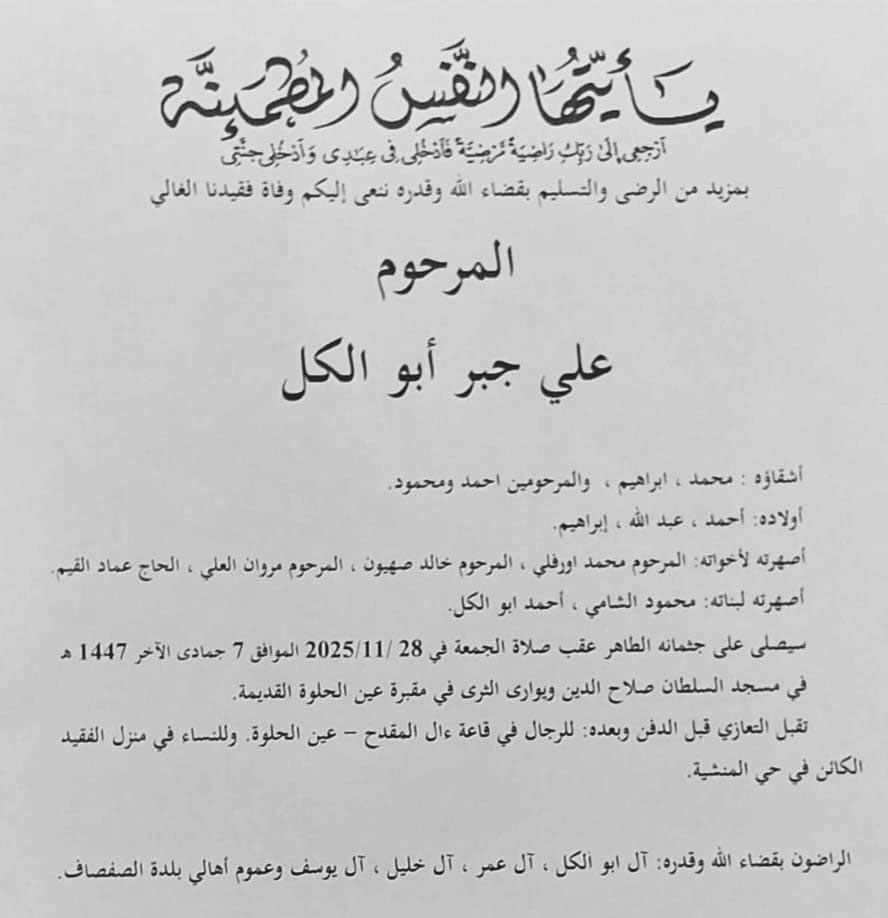 يَا أَيَّتُهَا النَّفْسُ الْمُطْمَئِنَّة
ارْجِعِي إِلَىٰ رَبِّكِ رَاضِيَةً مَّرْضِيَّةً فَادْخُلِي فِي عِبَادِي وَادْخُلِي جَنَّتِي
بمزيد من الرضى والتسليم بقضاء الله وقدره ننعى إليكم وفاة فقيدنا الغالي
المرحوم
علي جبر أبو الكل
أشقاؤه : محمد ، ابراهيم ، والمرحومين احمد ومحمود.
أولاده: أحمد ، عبد الله ، إبراهيم.
أصهرته لأخواته: المرحوم محمد اورفلي ، المرحوم خالد صهيون ، المرحوم مروان العلي ، الحاج عماد القيم.
أصهرته لبناته: محمود الشامي ، أحمد ابو الكل.
سيصلى على جثمانه الطاهر عقب صلاة الجمعة في 28 /2025/11 الموافق 7 جمادى الآخر 1447 هـ
في مسجد السلطان صلاح الدين ويوارى الثرى في مقبرة عين الحلوة القديمة.
تقبل التعازي قبل الدفن وبعده: للرجال في قاعة ءال المقدح – عين الحلوة. وللنساء في منزل الفقيد
الكائن في حي المنشية.
الراضون بقضاء الله وقدره: آل ابو الكل ، آل عمر ، آل خليل ، آل يوسف وعموم أهالي بلدة الصفصاف.